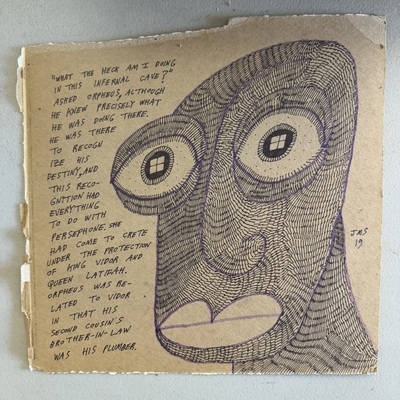 "WHAT THE HECK AM I DOING
IN THIS INFERNAL CAVE?"
ASKED ORPHEUS, ALTHOUGH
HE KNEW PRECISELY WHAT
HE WAS DOING THERE.
HE WAS THERE
TO RECOGN
IZE HIS
DESTINY, AND
THIS RECO-
GNITION HAD
EVERYTHING
TO DO WITH
PERSEPHONE. SHE
HAD COME TO CRETE
UNDER THE PROTECTION
OF KING VIDOR AND
QUEEN LATIFAH.
ORPHEUS WAS RE-
LATED TO VIDOR
IN THAT HIS
SECOND COUSIN'S
BROTHER-IN-LAW
WAS HIS PLUMBER.
JMS
19